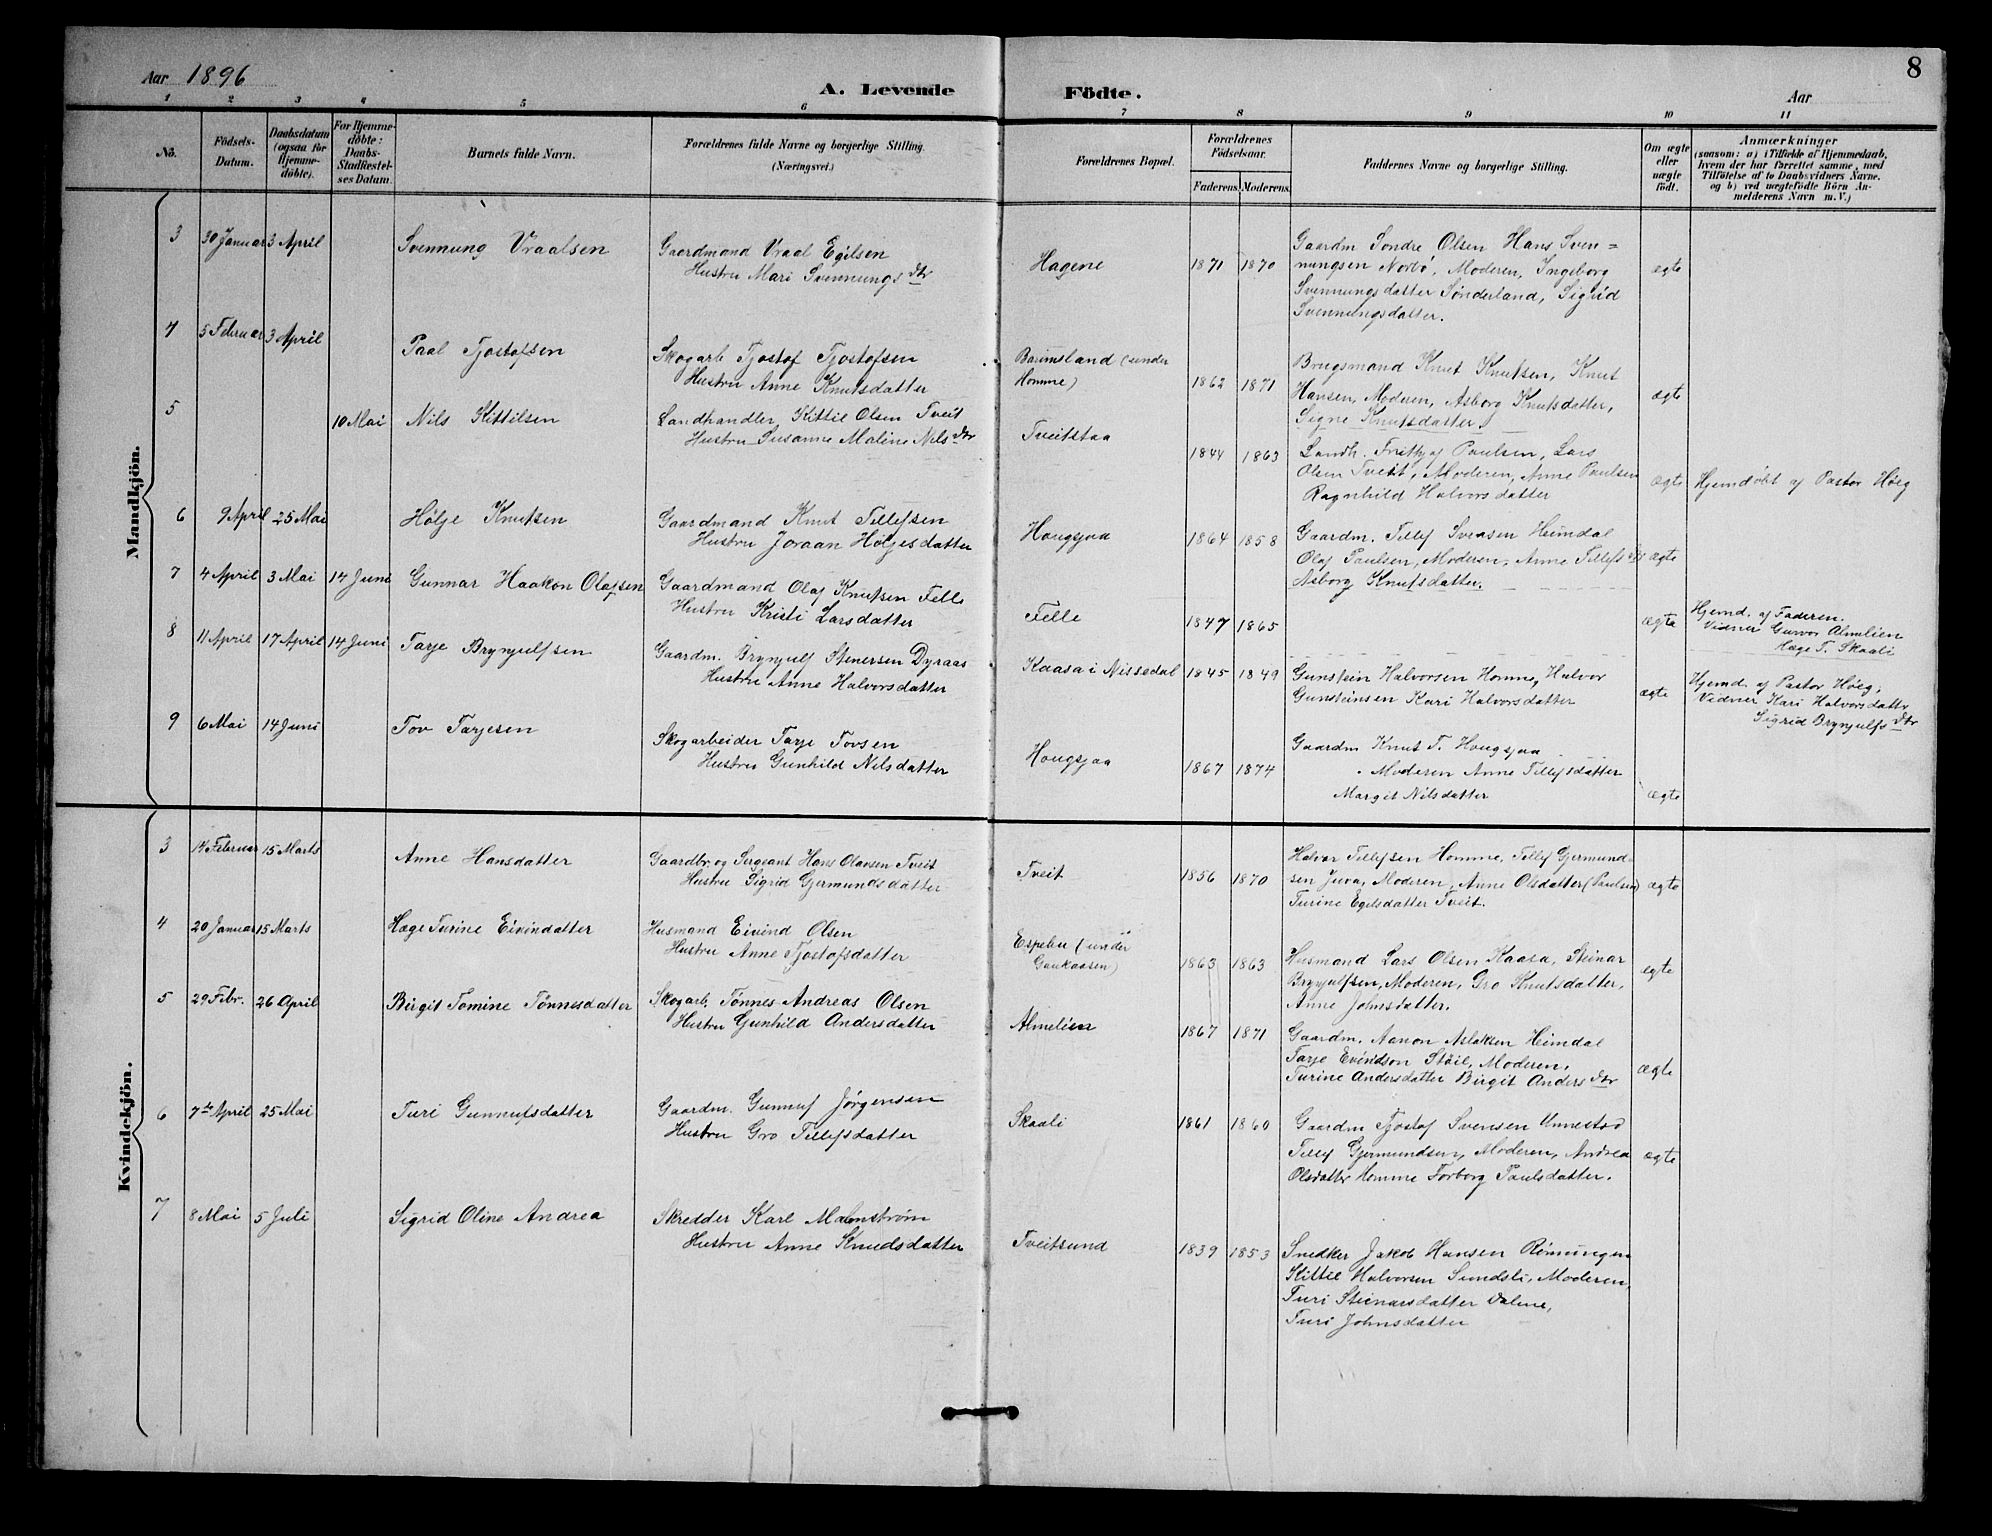 8
Aar 1896
A. Levende Födte.
Aar
1 2 3 4 5 6 7 8 9 10 11
No.
Födsels-Datum.
Daabsdatum (ogsaa for Hjemme-döbte).
For Hjemme-döbte: Daabs-Stadfæstel-ses Datum.
Barnets fulde Navn.
Forældrenes fulde Navne og borgerlige Stilling.
(Næringsvei.)
Forældrenes Bopæl.
Forældrenes Födselsaar.
Faderens. Moderens.
Faddernes Navne og borgerlige Stilling.
Om ægte eller uægte födt.
Anmærkninger
(saasom: a) i Tilfælde af Hjemmedaab,
hvem der har forrettet samme, med
Tilföielse af to Daabsvidners Navne.
og b) ved uægtefödte Börn An-
melderens Navn m. V.)
Mandkjön.
3 30 Januar 3 April Svennung Vraalsen
Gaardmand Vraal Egilsen
Hustru Mari Svennungsdtr
Hagene 1871 1870
Gaardm Sondre Olsen Hans Sven=
nungsen Norbö, Moderen, Ingeborg
Svennungsdatter Sönderland, Sigrid
Svennungsdatter.
ægte
4 5 Februar 3 April Paal Tjostofsen
Skogarb Tjostof Tjostofsen
Hustru Anne Knutsdatter
Barimsland (under
Homme)
1862 1871
Brugsmand Knut Knutsen, Knut
Hansen, Moderen, Asborg Knutsdatter,
Signe Knutsdatter
ægte
5 10 Mai Nils Kittilsen
Landhandler Kittil Olsen Tveit
Hustru Susanne Maline Nilsdtr
Tveitstaa 1844 1863
Landh. Frithjof Paulsen, Lars
Olsen Tveit, Moderen, Anne Paulsen
Ragnhild Halvorsdatter
ægte Hjemdöbt af Pastor Höeg
6 9 April 25 Mai Hölje Knutsen
Gaardmand Knut Tellefsen
Hustru Joraan Höljesdatter
Hougsjaa 1864 1858
Gaardm. Tellef Svensen Heimdal
Olaf Paulsen, Moderen, Anne Tellefsdtr
Asborg Knutsdatter.
ægte
7 4 April 3 Mai 14 Juni Gunnar Haakon Olafsen
Gaardmand Olaf Knutsen Felle
Hustru Kristi Larsdatter
Felle 1847 1865 ægte
Hjemd. af Faderen.
Vidner Gurvor Almelien
Hæge T. Skaali
8 11 April 17 April 14 Juni Tarje Brynjulfsen
Gaardm. Brynjulf Stenersen Dyraas
Hustru Anne Halvorsdatter
Kaasa i Nissedal 1845 1849
Gunstein Halvorsen Homme, Halvor
Gunsteinsen Kari Halvorsdatter
ægte
Hjemd af Pastor Höeg,
Vidner Kari Halvorsdattr
Sigrid Brynjulfsdtr
9 6 Mai 14 Juni Tov Tarjesen
Skogarbeider Tarje Tovsen
Hustru Gunhild Nilsdatter
Hougsjaa 1867 1874
Gaardm Knut T. Hougsjaa
Moderen Anne Tellefsdatter
Margit Nilsdatter
ægte
Kvindekjön.
3 14 Februar 15 Marts Anne Hansdatter
Gaardbr. og Sergeant Hans Olavsen Tveit
Hustru Sigrid Gjermundsdatter
Tveit 1856 1870
Halvor Tellefsen Homme, Tellef Gjermund-
sen Juva, Moderen, Anne Olsdatter (Paulsen)
Turine Egilsdatter Tveit.
ægte
4 20 Januar 15 Marts Hæge Turine Eivindatter
Husmand Eivind Olsen
Hustru Anne Tjostofsdatter
Espelin (under
Gaukaasen)
1863 1863
Husmand Lars Olsen Kaasa, Steinar
Brynjulfsen, Moderen, Gro Knutsdatter,
Anne Johnsdatter.
ægte
5 29 Febr. 26 April Birgit Tomine Tönnesdatter
Skogarb. Tönnes Andreas Olsen
Hustru Gunhild Andersdatter
Almelien 1867 1871
Gaardm. Aanon Aslaksen Heimdal
Tarje Evindson Stöil, Moderen,
Turine Andersdatter Birgit Andersdtr
ægte
6 7de April 25 Mai Turi Gunnufsdatter
Gaardm. Gunnuf Jörgensen
Hustru Gro Tellefsdatter
Skaali 1861 1860
Gaardm Tjostof Svensen Unnestad
Tellef Gjermundsen, Moderen, Andrea
Olsdatter Homme Torborg Paulsdatter.
ægte
7 8 Mai 5 Juli Sigrid Oline Andrea
Skredder Karl Malmström
Hustru Anne Knudsdatter
Tveitsund 1839 1853
Snedker Jakob Hansen Rönningen
Kittil Halvorsen Sundsli, Moderen,
Turi Steinarsdatter Dalene,
Turi Johnsdatter